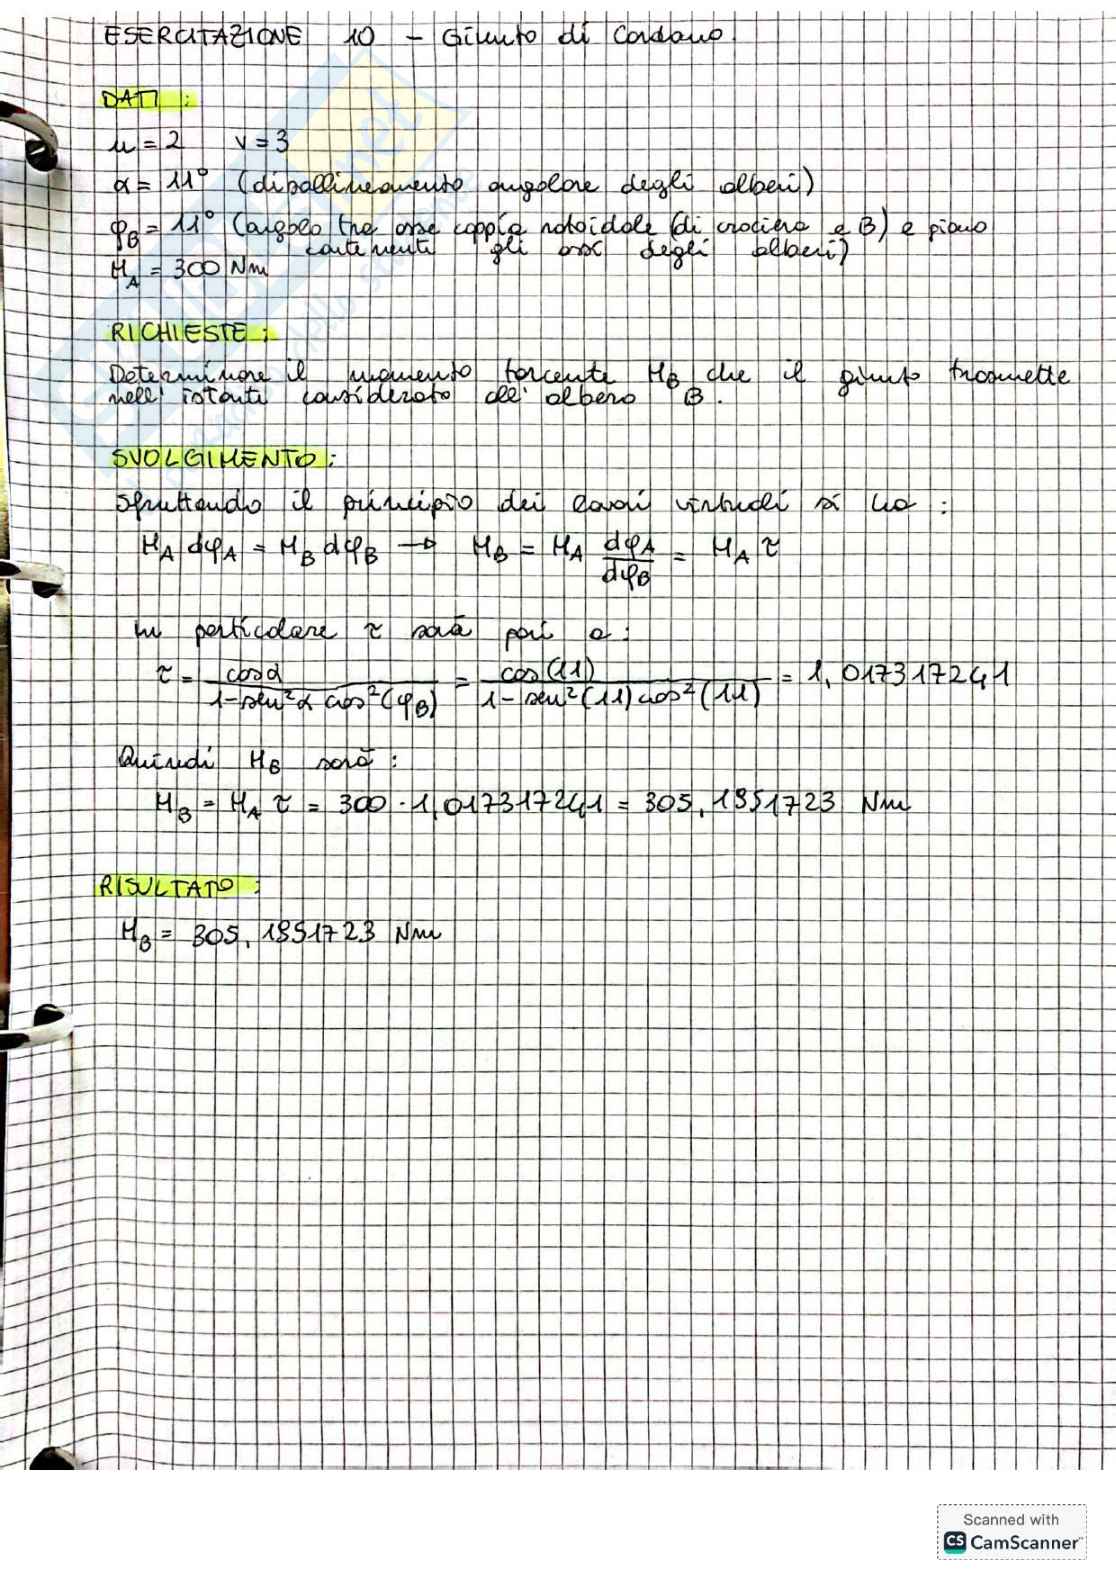 ESERCITAZIONE 10 - Giunto di Cardano.
DATI:
u = 2 v = 3
α = 11° (disallineamento angolare degli alberi)
φB = 11° (angolo tra asse coppia rotoidale (di crociera e B) e piano
contenente gli assi degli alberi)
MA = 300 Nm
RICHIESTE:
Determinare il momento torcente MB che il giunto trasmette
nell'istante considerato all'albero B.
SVOLGIMENTO:
Sfruttando il principio dei lavori virtuali si ha:
MA dφA = MB dφB → MB = MA dφA/dφB = MA τ
In particolare τ sarà pari a:
τ = cosα / 1-sen²α cos²(φB) = cos(11) / 1-sen²(11)cos²(11) = 1,017317241
Quindi MB sarà:
MB = MA τ = 300 · 1,017317241 = 305,1951723 Nm
RISULTATO:
MB = 305,1951723 Nm
Scanned with
CS CamScanner